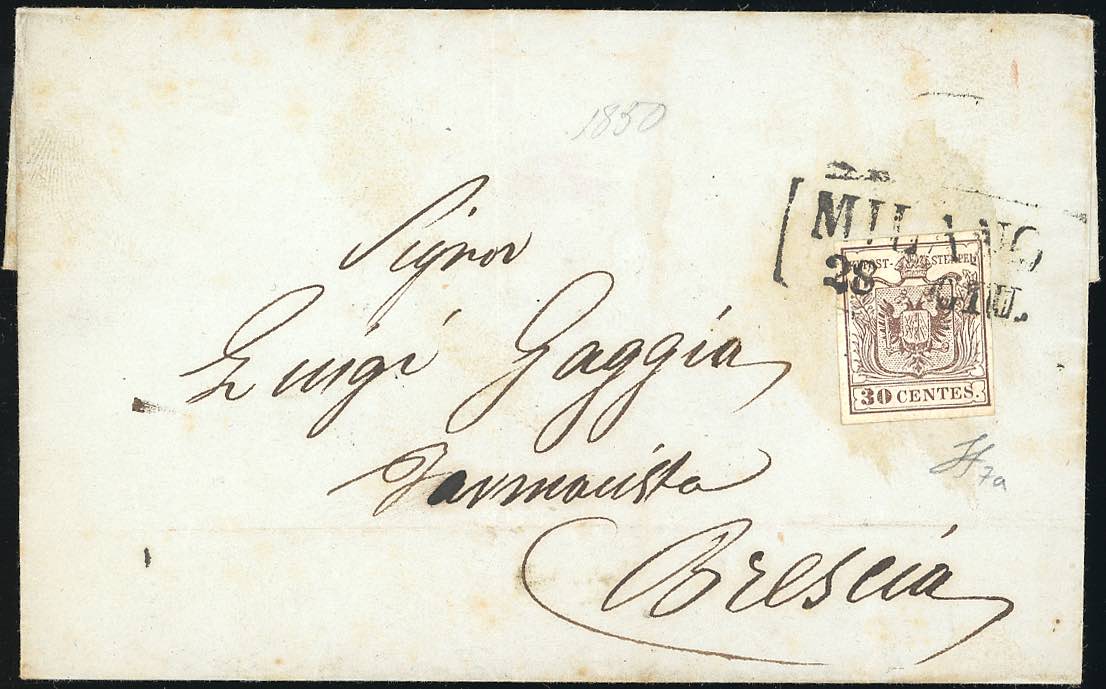 1850
MILANO
28 GIU.
KKPOST-STEMPEL
30 CENTES.
7a
Signor
Luigi Gaggia
Farmacista
Brescia